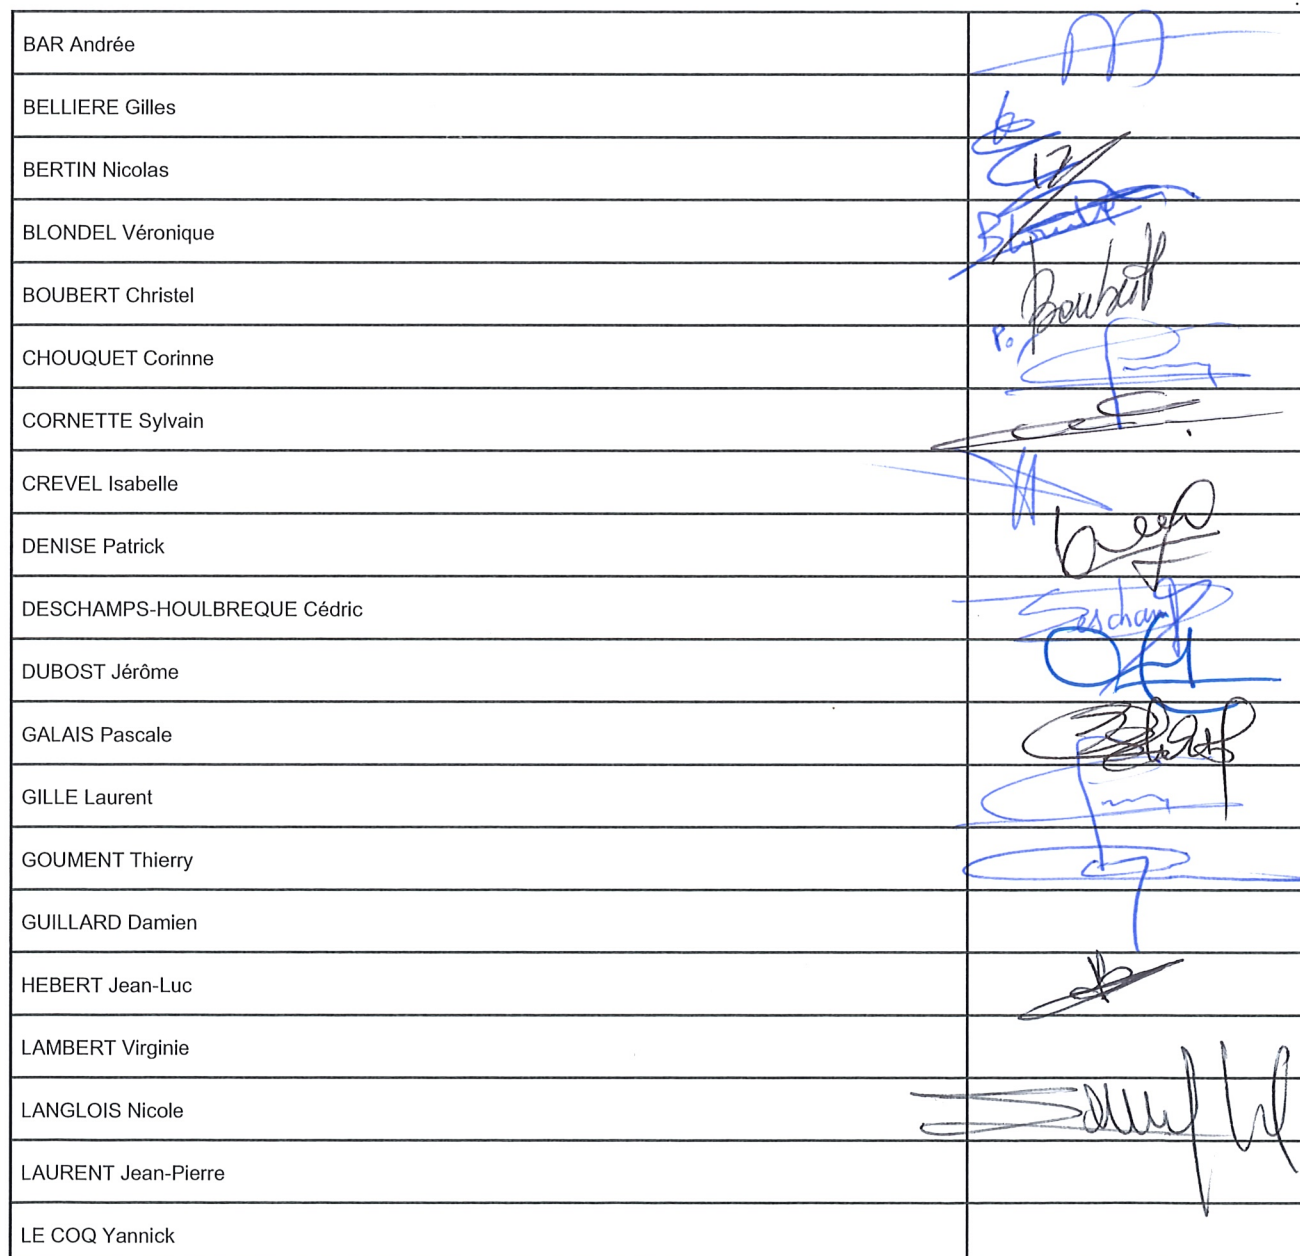 BAR Andrée
BELLIERE Gilles
BERTIN Nicolas
BLONDEL Véronique
Blondel
BOUBERT Christel
Boubert
P.
CHOUQUET Corinne
CORNETTE Sylvain
CREVEL Isabelle
DENISE Patrick
DESCHAMPS-HOULBREQUE Cédric
Deschamps
DUBOST Jérôme
GALAIS Pascale
GILLE Laurent
GOUMENT Thierry
GUILLARD Damien
HEBERT Jean-Luc
LAMBERT Virginie
LANGLOIS Nicole
LAURENT Jean-Pierre
LE COQ Yannick